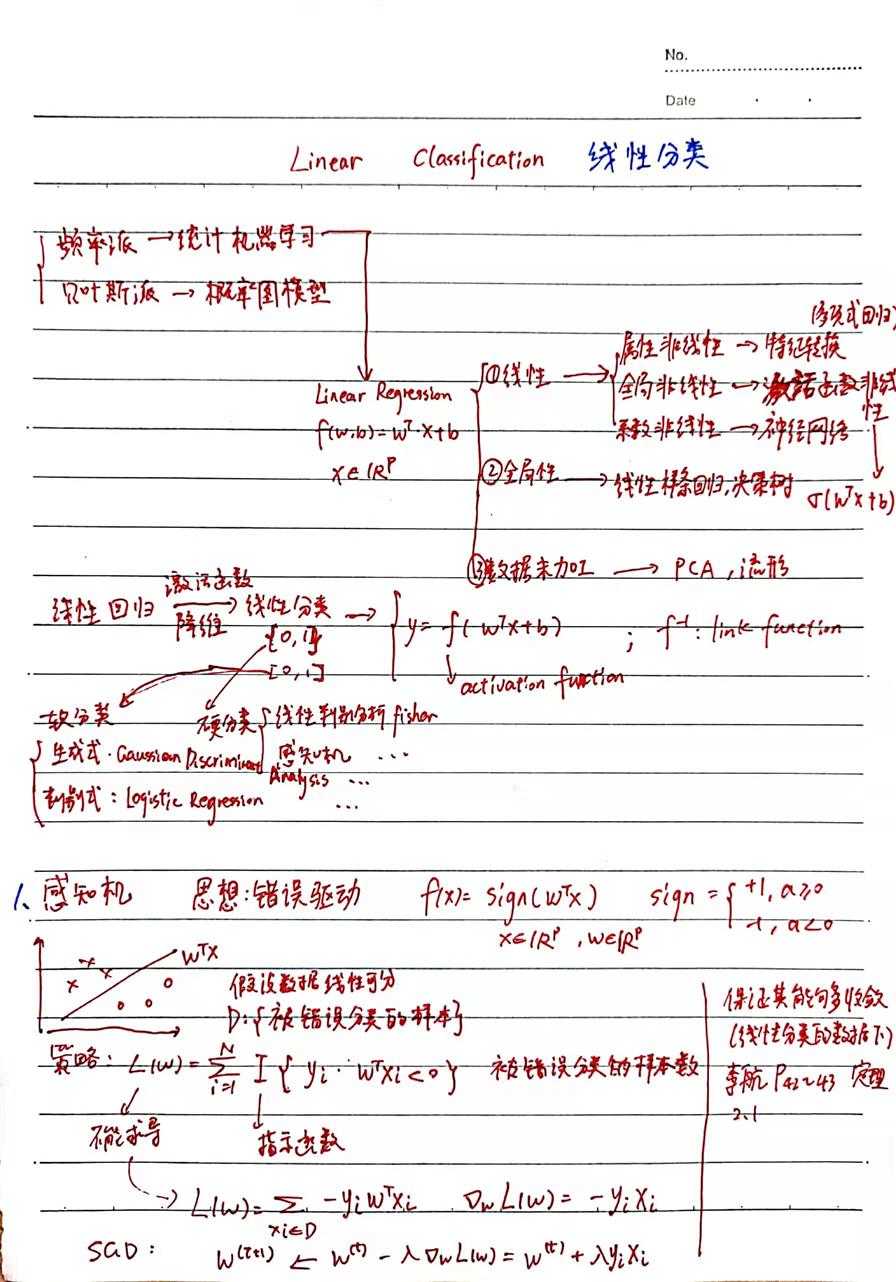 No.
Date
Linear Classification 线性分类
频率派 → 统计机器学习
贝叶斯派 → 概率图模型
Linear Regression
f(w,b)=wᵀ·x+b
x∈ℝᵖ
①线性 →
属性非线性 → 特征转换 (多项式回归)
全局非线性 → 激活函数非线性
σ(wᵀx+b)
系数非线性 → 神经网络
②全局性 → 线性样条回归,决策树
③数据未加工 → PCA,流形
线性回归 激活函数 降维 → 线性分类 → { y = f(wᵀx+b) ; f⁻¹: link function
activation function
{0,1}
[0,1]
软分类
生成式·Gaussian Discriminant Analysis ...
判别式: Logistic Regression ...
硬分类
线性判别分析 fisher
感知机 ...
1、感知机 思想:错误驱动 f(x)= sign(wᵀx) sign = { +1, a≥0
-1, a<0
x∈ℝᵖ , w∈ℝᵖ
wᵀx
假设数据线性可分
D:{被错误分类的样本}
策略: L(w)= ∑ᵢ₌₁ᴺ I { yᵢ· wᵀxᵢ<0 } 被错误分类的样本数
不能求导
指示函数
→ L(w)= ∑_{xᵢ∈D} -yᵢwᵀxᵢ ∇_w L(w)= -yᵢxᵢ
SGD: w⁽ᵗ⁺¹⁾ ← w⁽ᵗ⁾ - λ∇_w L(w) = w⁽ᵗ⁾ + λyᵢxᵢ
保证其能向多收敛
(线性分类的数据下)
李航 P42~43 定理
2.1